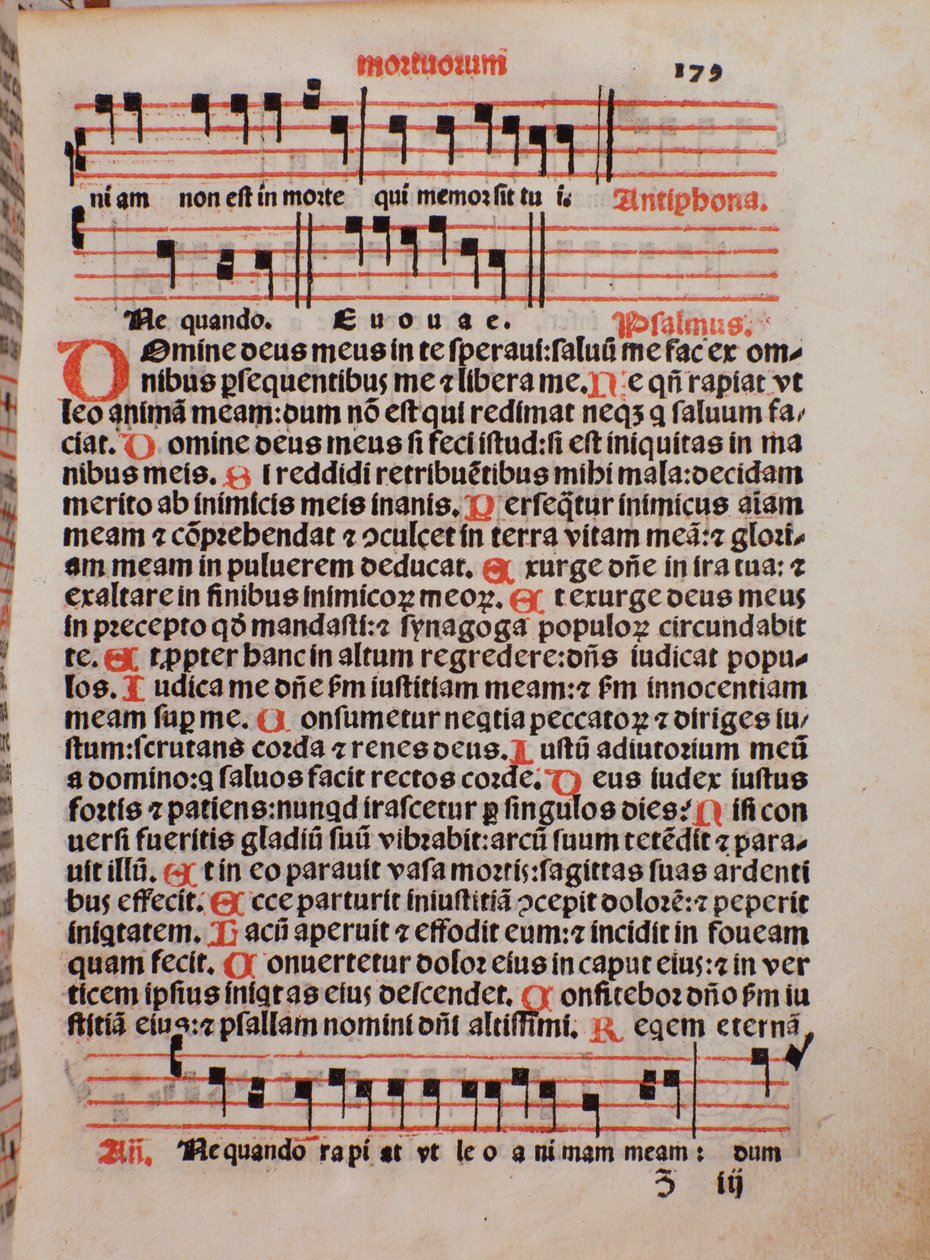 mortuorum 179
ni am non est in morte qui memor sit tu i. Antiphona.
Ne quando. E u o u a e. Psalmus.
DOmine deus meus in te speraui:saluū me fac ex om-
nibus ꝑsequentibus me ⁊ libera me. Ne qñ rapiat vt
leo animā meam:dum nō est qui redimat neqꝫ q̇ saluum fa/
ciat. Domine deus meus si feci istud:si est iniquitas in ma
nibus meis. Si reddidi retribuētibus mihi mala:decidam
merito ab inimicis meis inanis. Perseqūtur inimicus aīam
meam ⁊ cōprehendat ⁊ ꝯculcet in terra vitam meā:⁊ glori-
am meam in puluerem deducat. Exurge dñe in ira tua: ⁊
exaltare in finibus inimicoꝝ meoꝝ. Et exurge deus meus
in precepto qd̄ mandasti:⁊ synagoga populoꝝ circundabit
te. Et ꝓpter hanc in altum regredere:dñs iudicat popu-
los. Iudica me dñe ẜm iustitiam meam:⁊ ẜm innocentiam
meam suꝑ me. Consumetur neqtia peccatoꝝ ⁊ diriges iu/
stum:scrutans corda ⁊ renes deus. Iustū adiutorium meū
a domino:q̇ saluos facit rectos corde. Deus iudex iustus
fortis ⁊ patiens:nunqd irascetur ꝑ singulos dies? Nisi con
uersi fueritis gladiū suū vibrabit:arcū suum tetēdit ⁊ para-
uit illū. Et in eo parauit vasa mortis:sagittas suas ardenti
bus effecit. Ecce parturit iniustitiā ꝯcepit dolorē:⁊ peperit
iniqtatem. Lacū aperuit ⁊ effodit eum:⁊ incidit in foueam
quam fecit. Conuertetur dolor eius in caput eius:⁊ in ver
ticem ipsius iniqtas eius descendet. Confitebor dño ẜm iu
stitiā eius:⁊ psallam nomini dñi altissimi. Reqem eternā
Añ. Ne quando ra pi at vt le o a ni mam meam : dum
Z iij